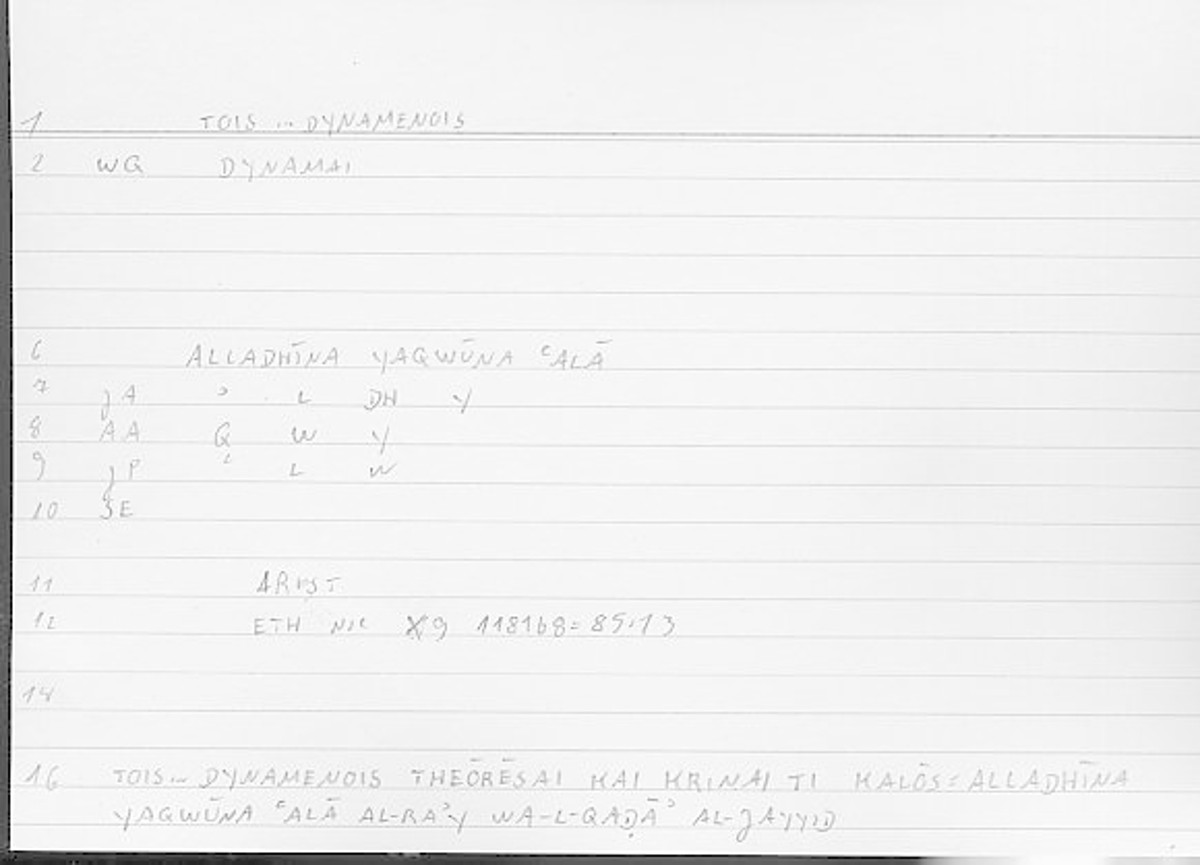 1 TOIS ... DYNAMENOIS
2 WQ DYNAMAI
6 ALLADHĪNA YAQWŪNA ʿALĀ
7 JA ʾ L DH Y
8 AA Q W Y
9 JP ʿ L W
10 SE
11 ARIST
12 ETH NIC X9 1181b8=85.13
14
16 TOIS... DYNAMENOIS THEŌRĒSAI KAI KRINAI TI KALŌS=ALLADHĪNA
YAQWŪNA ʿALĀ AL-RAʾY WA-L-QAḌĀʾ AL-JAYYID